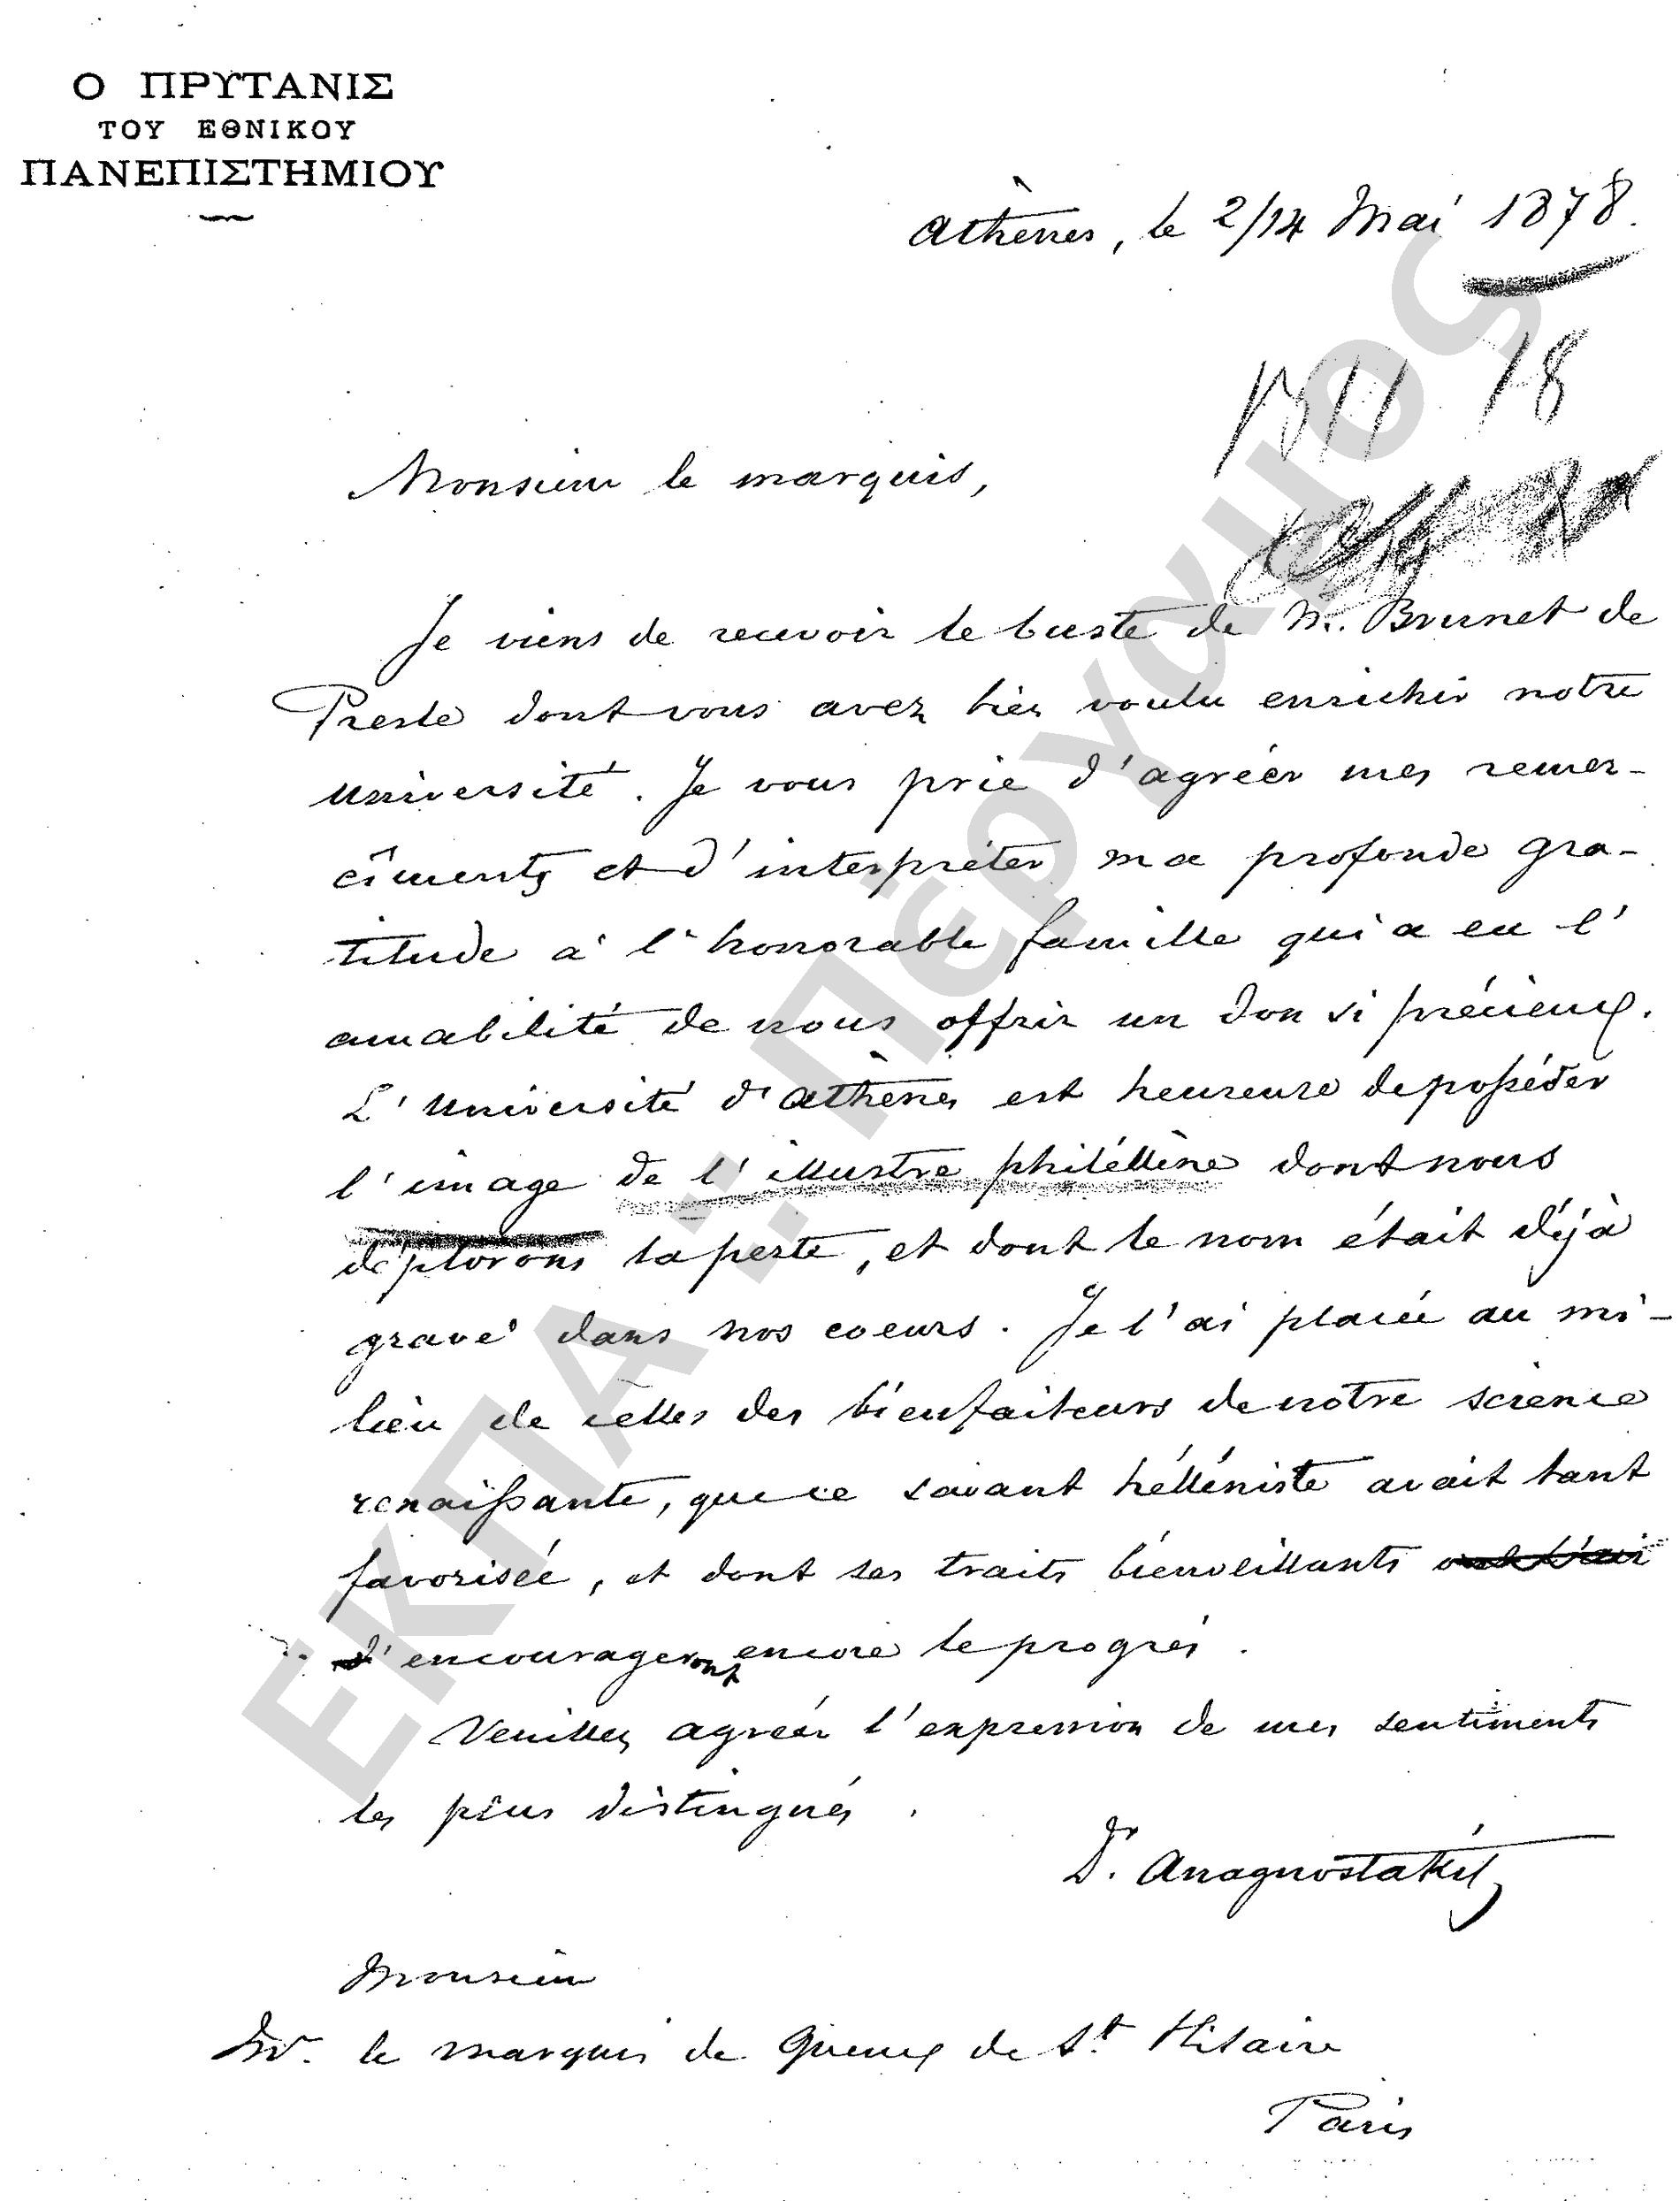 Ο ΠΡΥΤΑΝΙΣ
ΤΟΥ ΕΘΝΙΚΟΥ
ΠΑΝΕΠΙΣΤΗΜΙΟΥ
Athènes, le 2/14 Mai 1878.
Monsieur le marquis,
Je viens de recevoir le buste de M. Brunet de
Presle dont vous avez bien voulu enrichir notre
université. Je vous prie d'agréer mes remer-
cîments et d'interpréter ma profonde gra-
titude à l'honorable famille qui a eu l'
amabilité de nous offrir un don si précieux.
L'Université d'Athènes est heureuse de posséder
l'image de l'illustre philéllène dont nous
déplorons la perte, et dont le nom était déjà
gravé dans nos coeurs. Je l'ai placée au mi-
lieu de celles des bienfaiteurs de notre science
renaissante, que ce savant hélléniste avait tant
favorisée, et dont ses traits bienveillants
encourageront encore le progrès.
Veuillez agréer l'expression de mes sentiments
les plus distingués.
Dr. Anagnostakis
Monsieur
Mr. le marquis de Queux de St. Hilaire
Paris
ΕΚΠΑ :: Πέργαμος